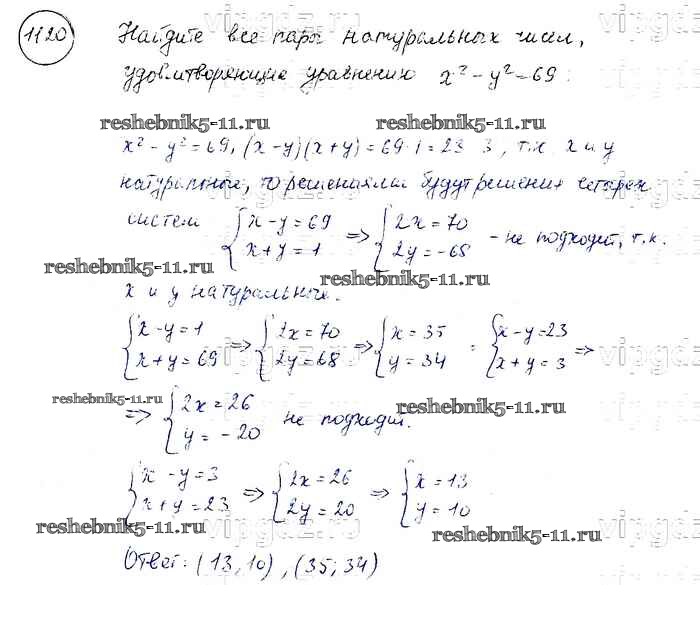 1120 Найдите все пары натуральных чисел,
удовлетворяющие уравнению x² - y² = 69:
reshebnik5-11.ru reshebnik5-11.ru
x² - y² = 69, (x-y)(x+y) = 69·1 = 23·3, т.к. x и y
натуральные, то решениями будут решения четырех
систем { x-y=69 x+y=1 => { 2x=70 2y=-68 - не подходит, т.к.
reshebnik5-11.ru reshebnik5-11.ru
x и y натуральные.
{ x-y=1 x+y=69 => { 2x=70 2y=68 => { x=35 y=34 : { x-y=23 x+y=3 =>
reshebnik5-11.ru reshebnik5-11.ru
=> { 2x=26 y=-20 не подходит.
{ x-y=3 x+y=23 => { 2x=26 2y=20 => { x=13 y=10
reshebnik5-11.ru reshebnik5-11.ru
Ответ: (13,10), (35;34)